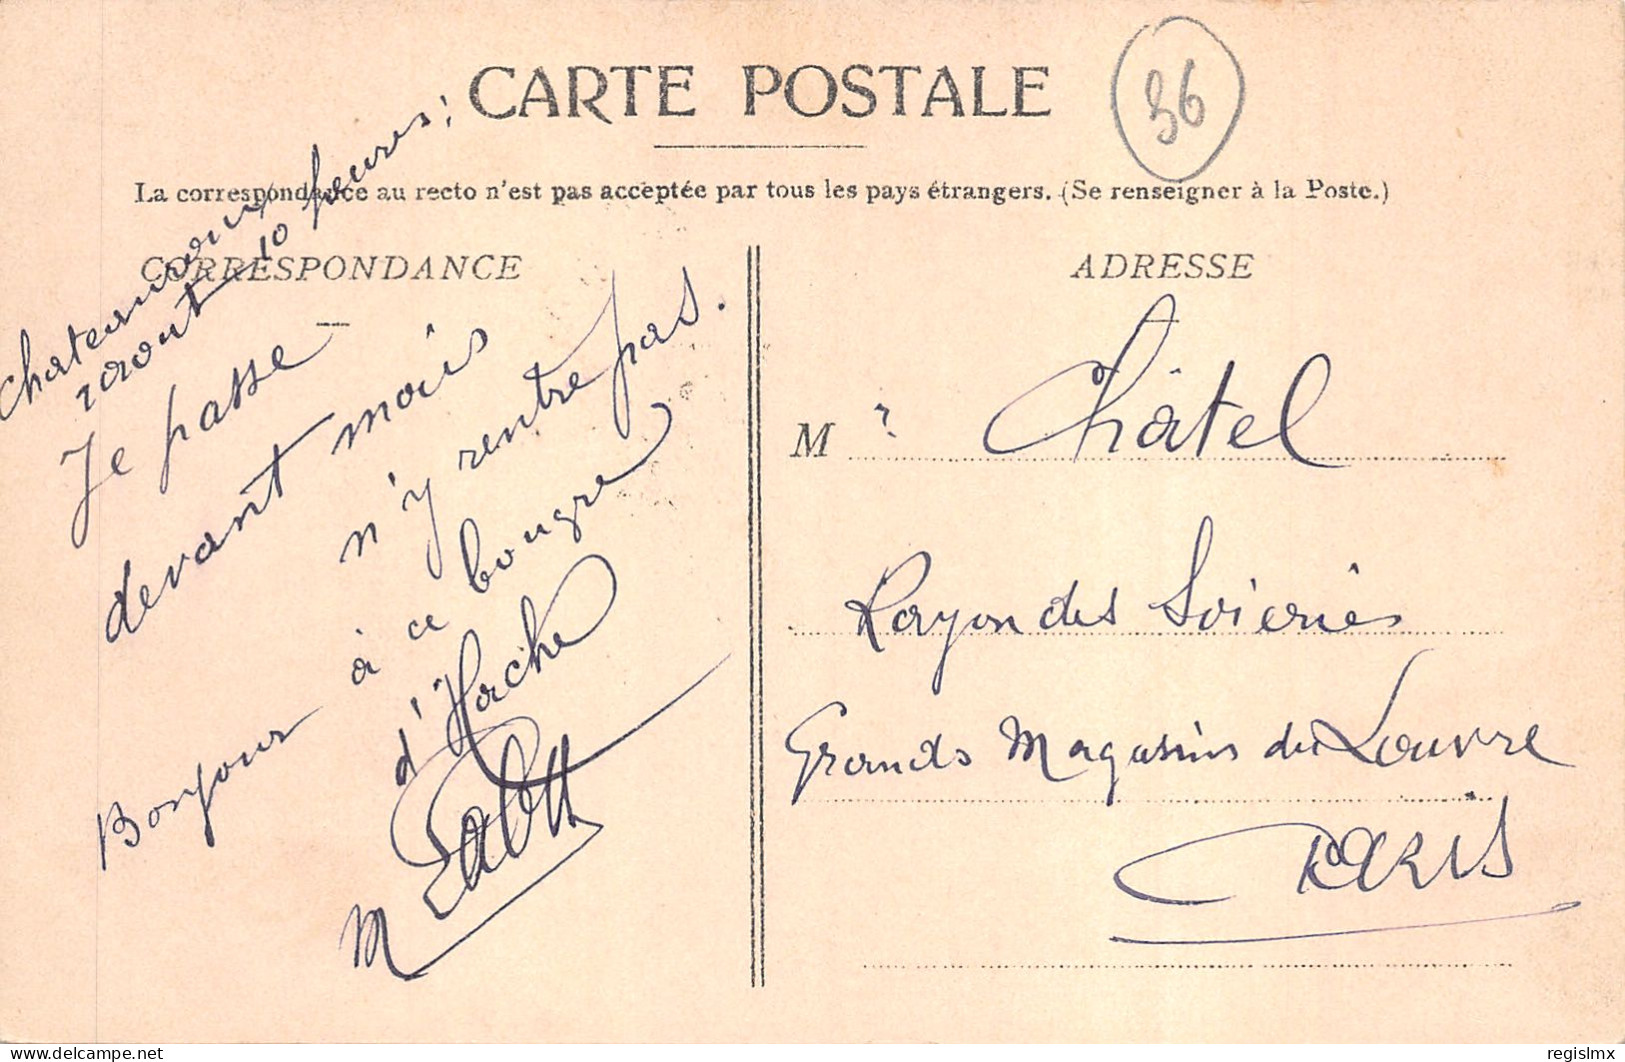 CARTE POSTALE
36
La correspondance au recto n'est pas acceptée par tous les pays étrangers. (Se renseigner à la Poste.)
CORRESPONDANCE
Chateauroux
août 10 heures;
Je passe
devant mais
n'y rentre pas.
Bonjour à ce bougre
d'Hache
M
ADRESSE
M r Châtel
Rayon des Soieries
Grands Magasins du Louvre
PARIS
delcampe.net
regislmx